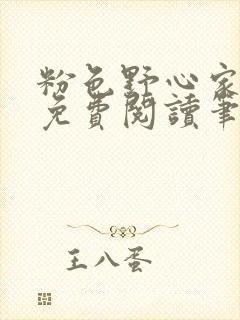 粉色野心家
免費閱讀筆
王八蛋